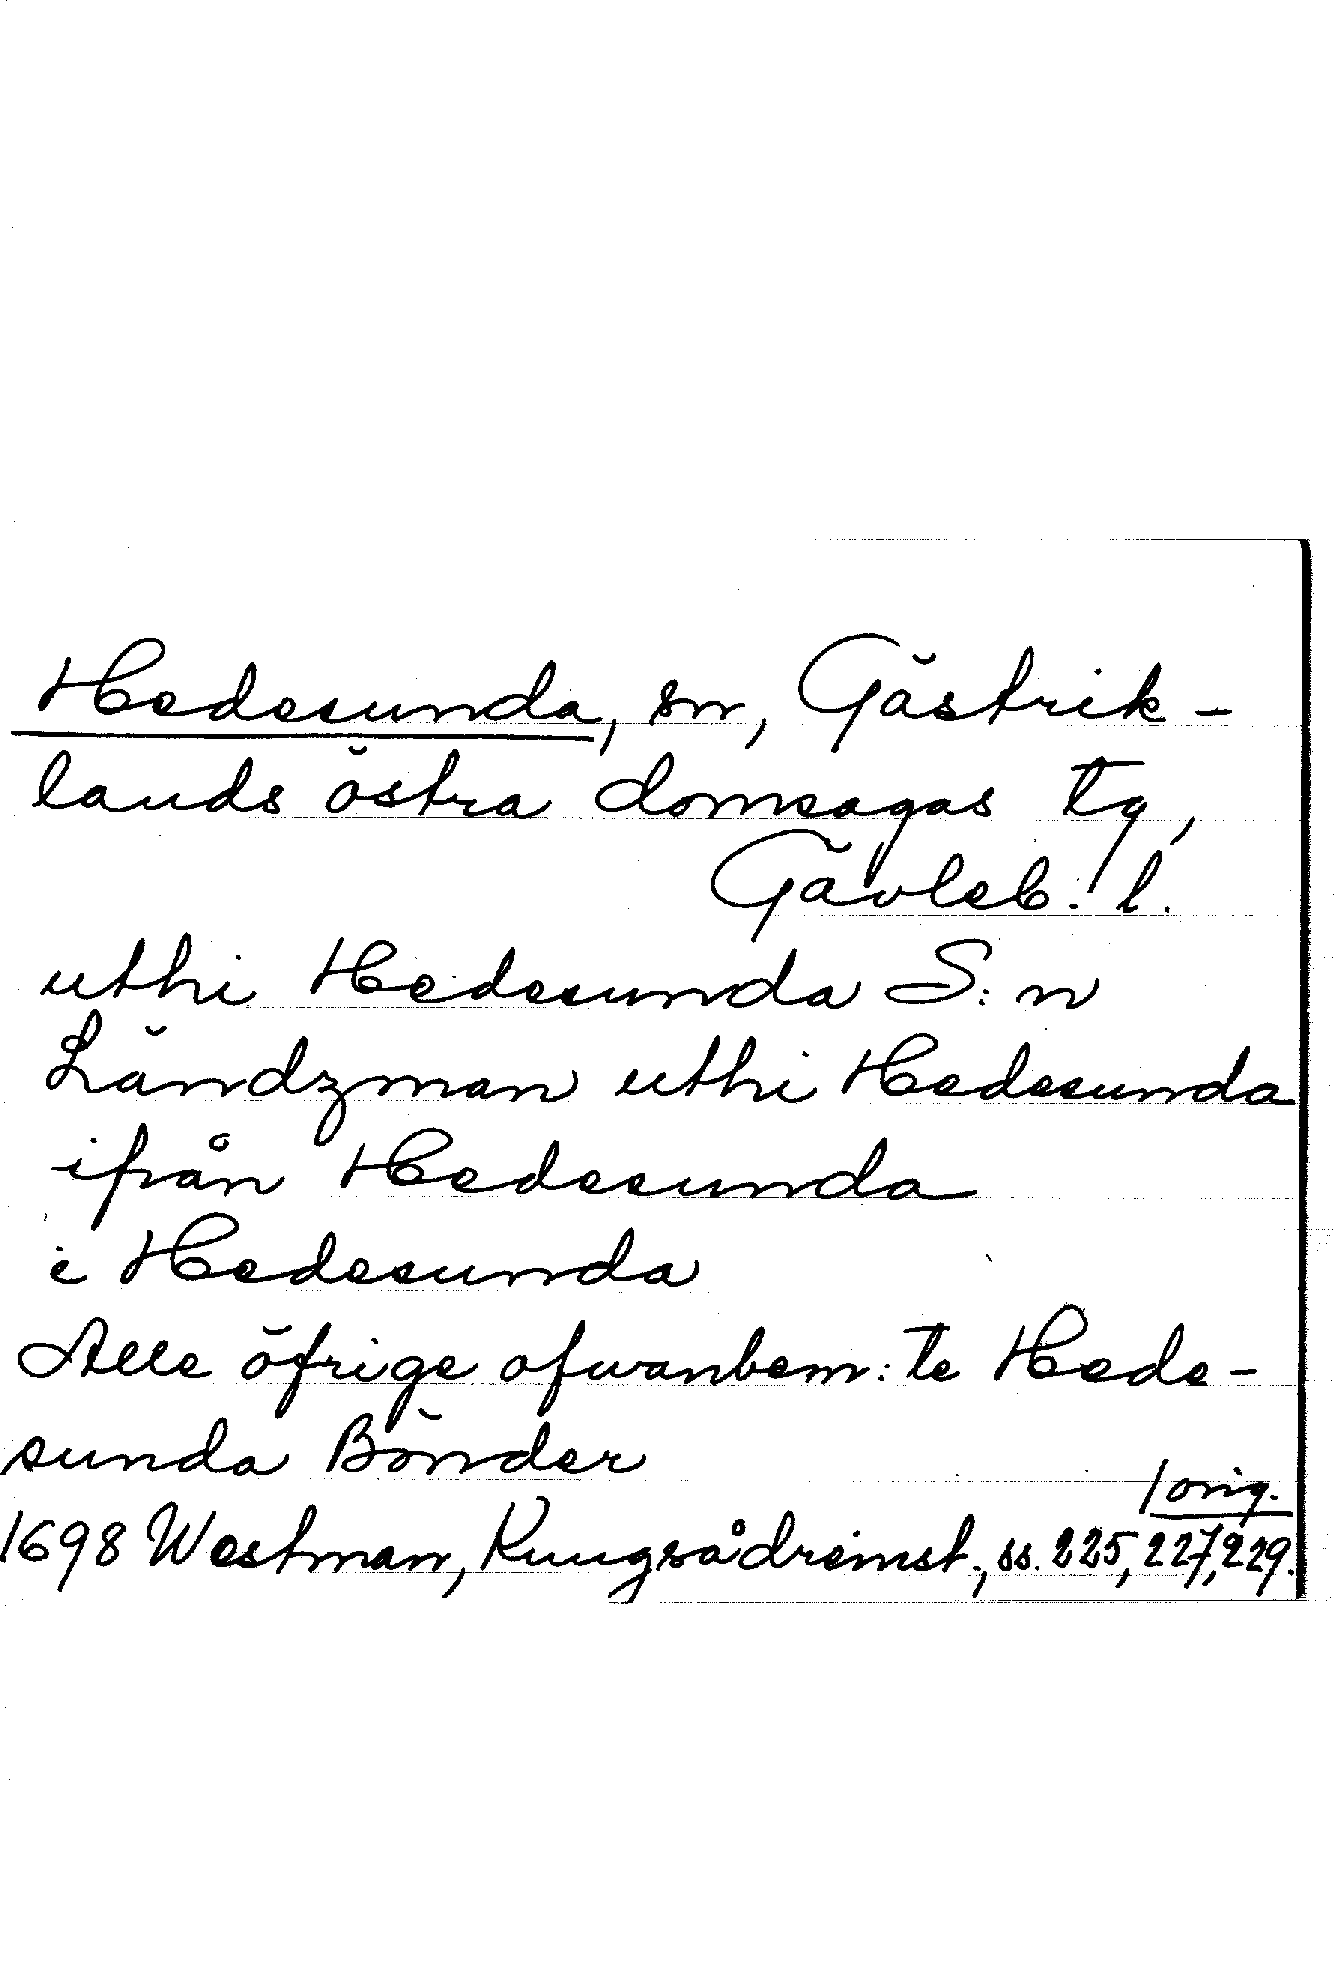 Hedesunda, sn, Gästrik-
lands östra domsagas tg,
Gävleb. l.
uthi Hedesunda S:n
Ländzman uthi Hedesunda
ifrån Hedesunda
i Hedesunda
Alle öfrige ofwanbem:te Hede-
sunda Bönder
/orig.
1698 Westman, Kungsådreinst., ss. 225, 227, 229.